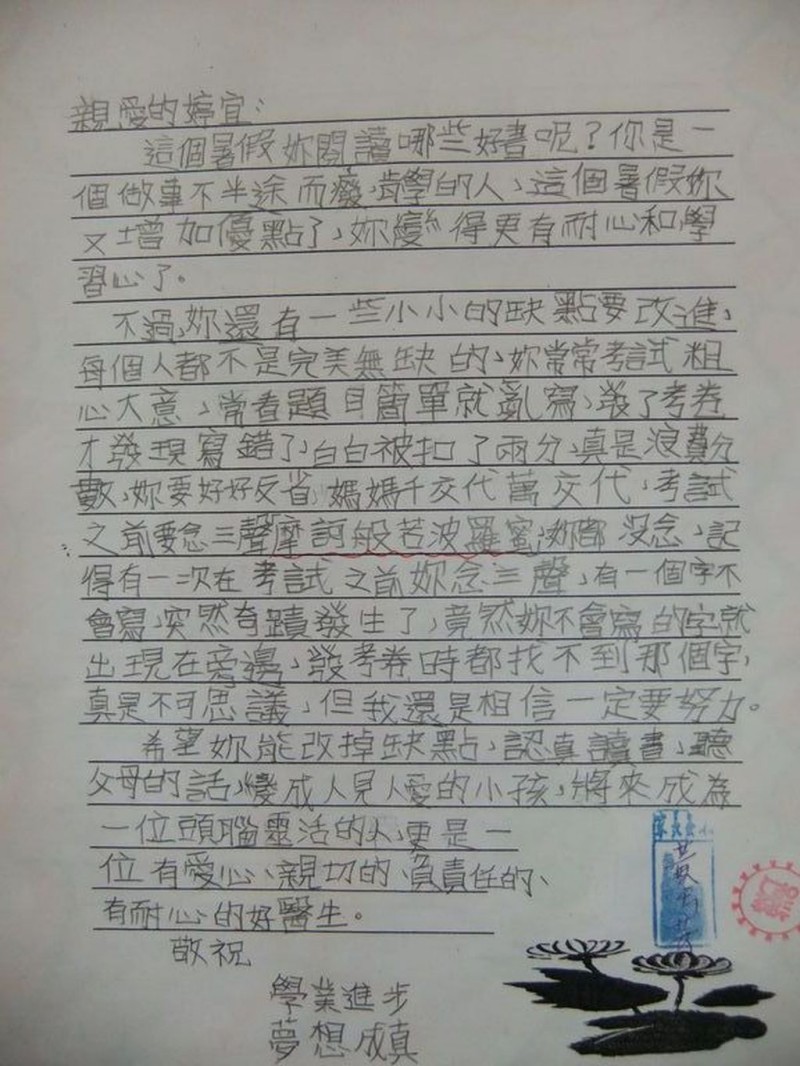 親愛的婷宜：
這個暑假妳閱讀哪些好書呢？你是一
個做事不半途而癈、肯學的人、這個暑假妳
又增加優點了、妳變得更有耐心和學
習心了。
不過、妳還有一些小小的缺點要改進、
每個人都不是完美無缺的、妳常常考試粗
心大意、常看題目簡單就亂寫、發了考卷
才發現寫錯了、白白被扣了兩分、真是浪費分
數、妳要好好反省、媽媽千交代萬交代、考試
之前要念三聲摩訶般若波羅蜜、妳都沒念、記
得有一次在考試之前妳念三聲、有一個字不
會寫、突然奇蹟發生了、竟然妳不會寫的字就
出現在旁邊、發考卷時都找不到那個字、
真是不可思議、但我還是相信一定要努力。
希望妳能改掉缺點、認真讀書、聽
父母的話、變成人見人愛的小孩、將來成為
一位頭腦靈活的人、更是一
位有愛心、親切的、負責任的、
有耐心的好醫生。
敬祝
學業進步
夢想成真